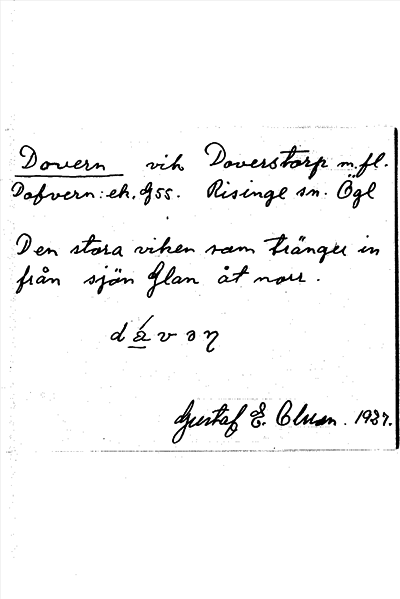 Dovern vik Doverstorp m.fl.
Dofvern: ek. g 55. Risinge sn. Ögl
Den stora viken som tränger in
från sjön Glan åt norr.
Gustaf E. 1937.